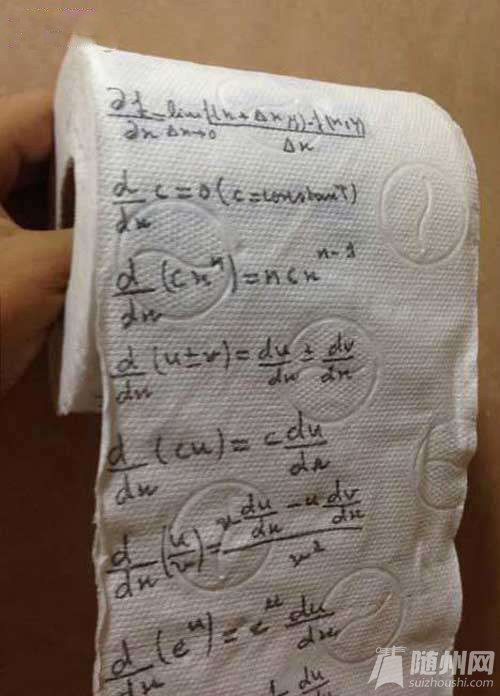 ∂f/∂x = lim Δx→0 f(x + Δx, y) - f(x, y) / Δx
d/dx c = 0 (c = constant)
d/dx (cxⁿ) = ncxⁿ⁻¹
d/dx (u ± v) = du/dx ± dv/dx
d/dx (cu) = c du/dx
d/dx (u/v) = v du/dx - u dv/dx / v²
d/dx (eᵘ) = eᵘ du/dx
du
随州网
suizhoushi.com